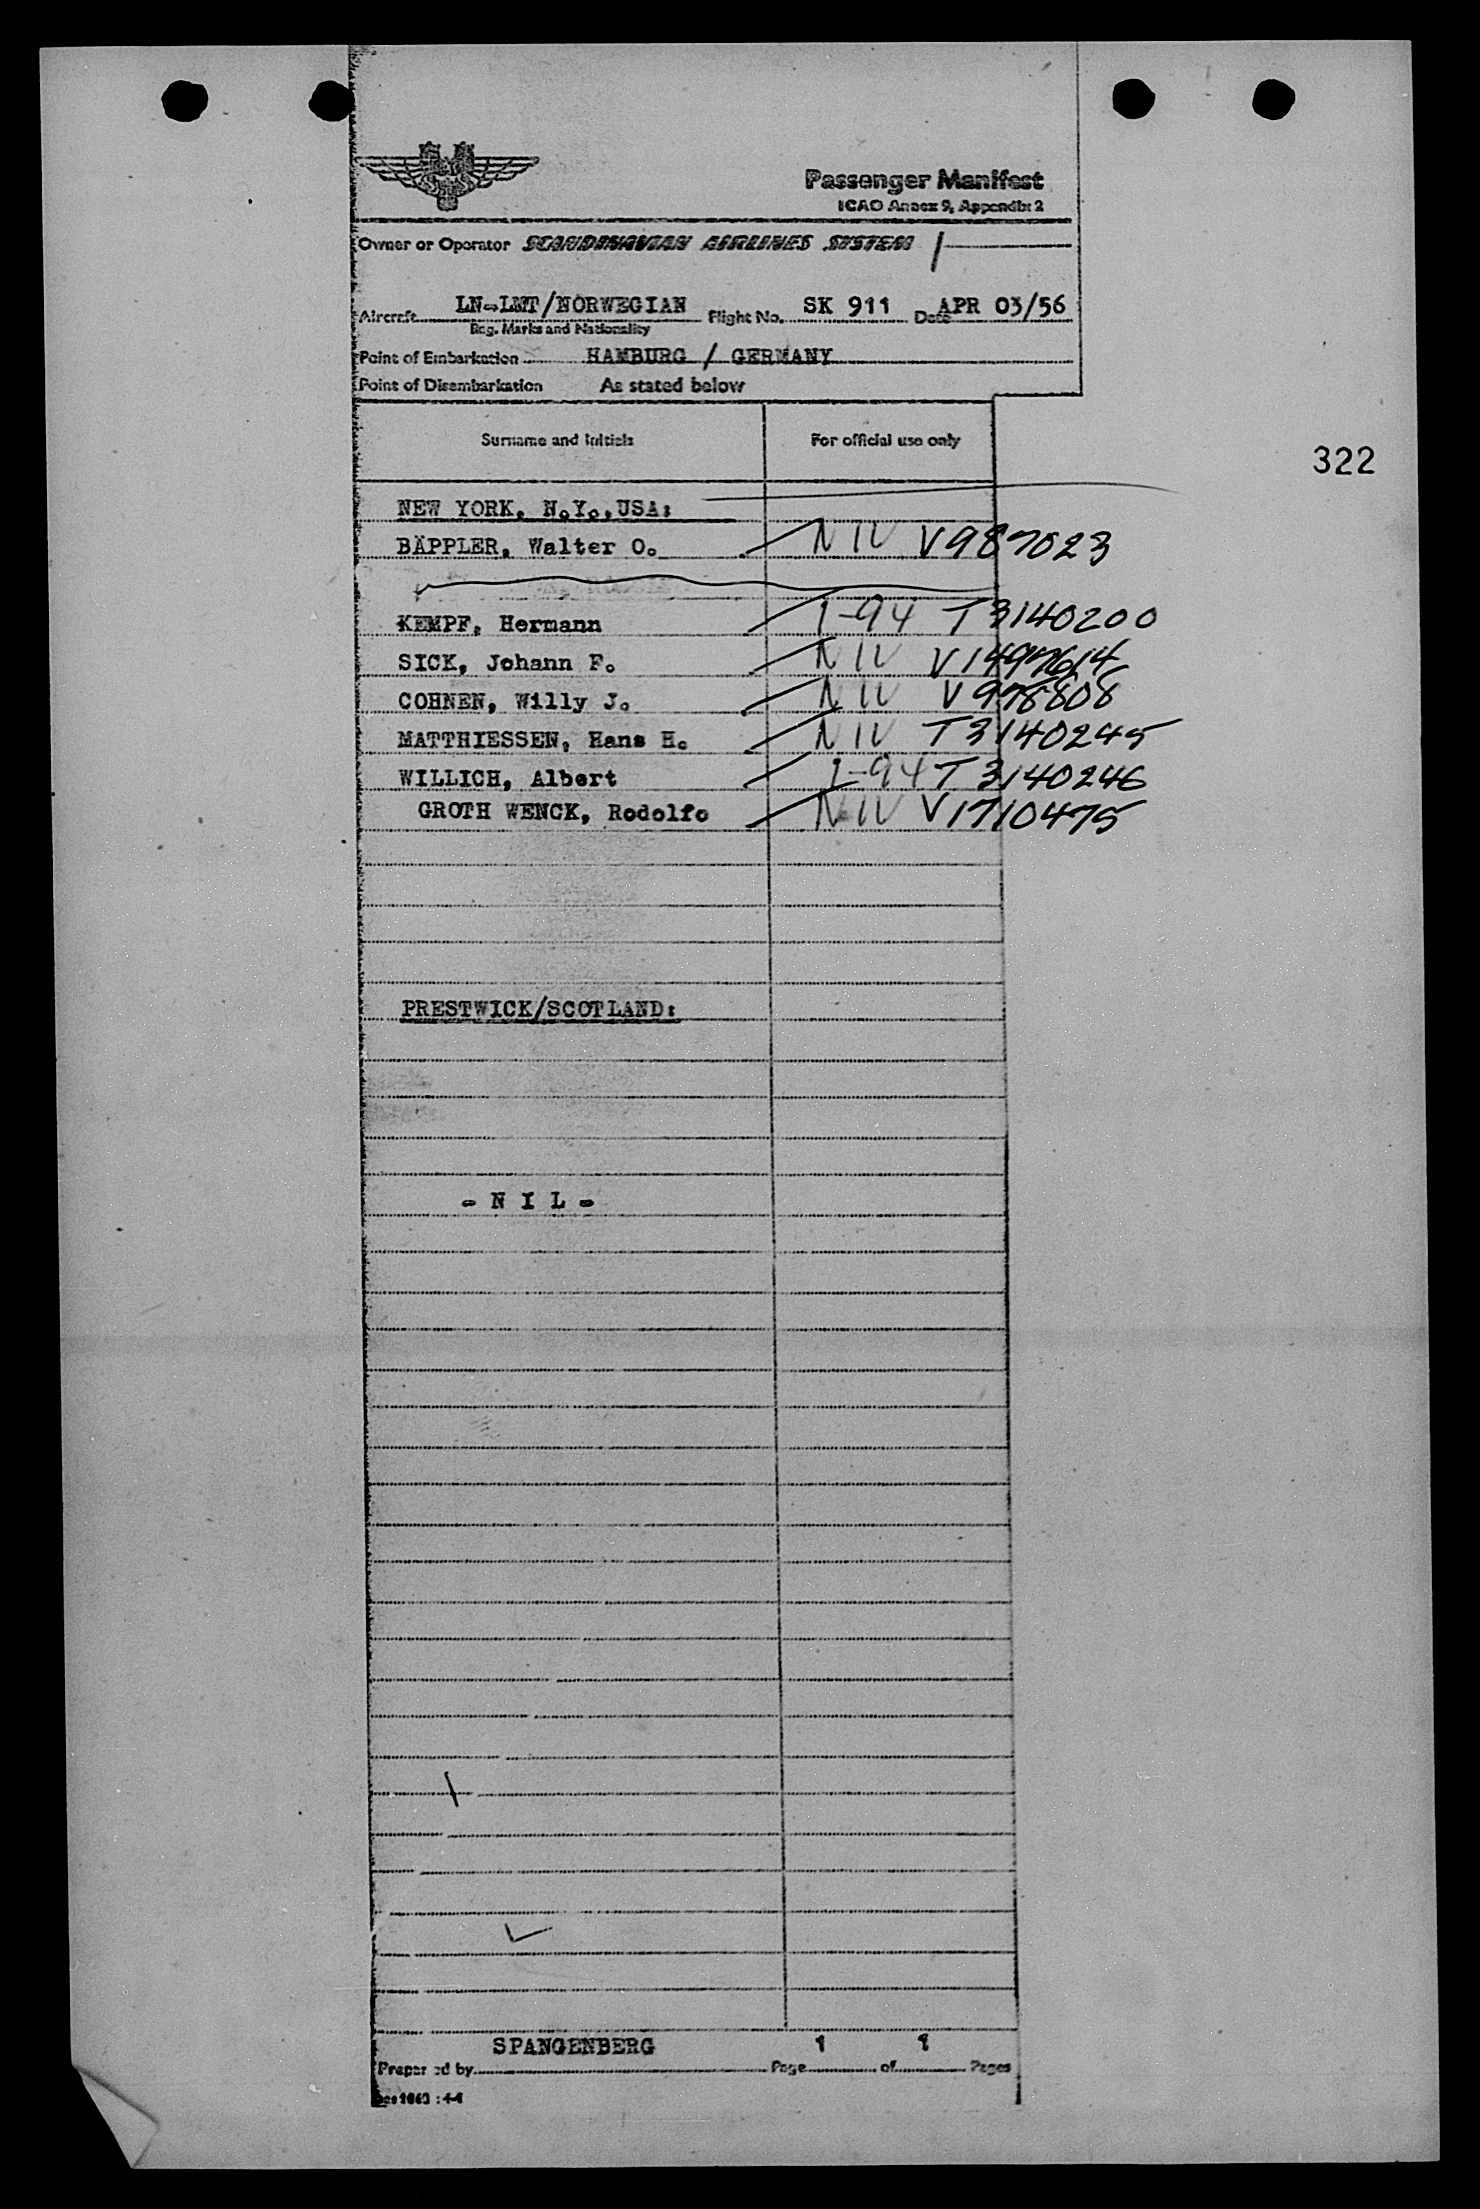 Passenger Manifest
ICAO Annex 9, Appendix 2
Owner or Operator SCANDINAVIAN AIRLINES SYSTEM
Aircraft LN-LMT/NORWEGIAN Flight No. SK 911 Date APR 03/56
Reg. Marks and Nationality
Point of Embarkation HAMBURG / GERMANY
Point of Disembarkation As stated below
Surname and Initials For official use only
322
NEW YORK, N.Y.,USA:
BÄPPLER, Walter O. NIV V987023
KEMPF, Hermann I-94 T3140200
SICK, Johann F. NIV V1497614
COHNEN, Willy J. NIV V978808
MATTHIESSEN, Hans H. NIV T3140245
WILLICH, Albert I-94 T3140246
GROTH WENCK, Rodolfo NIV V1710475
PRESTWICK/SCOTLAND:
- N I L -
SPANGENBERG 1 1
Prepared by Page of Pages